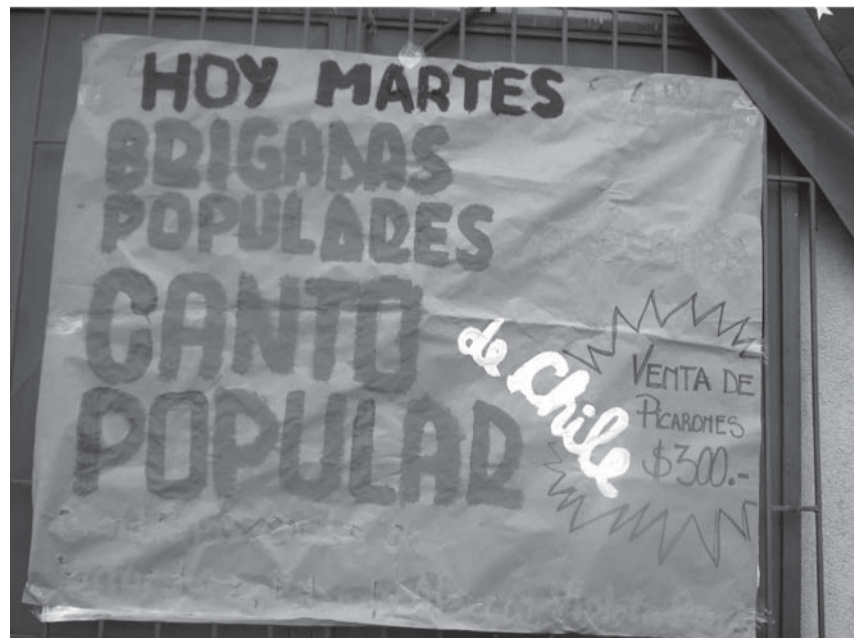 HOY MARTES
BRIGADAS
POPULARES
CANTO
POPULAR
de Chile
VENTA DE
PICARONES
$300.-